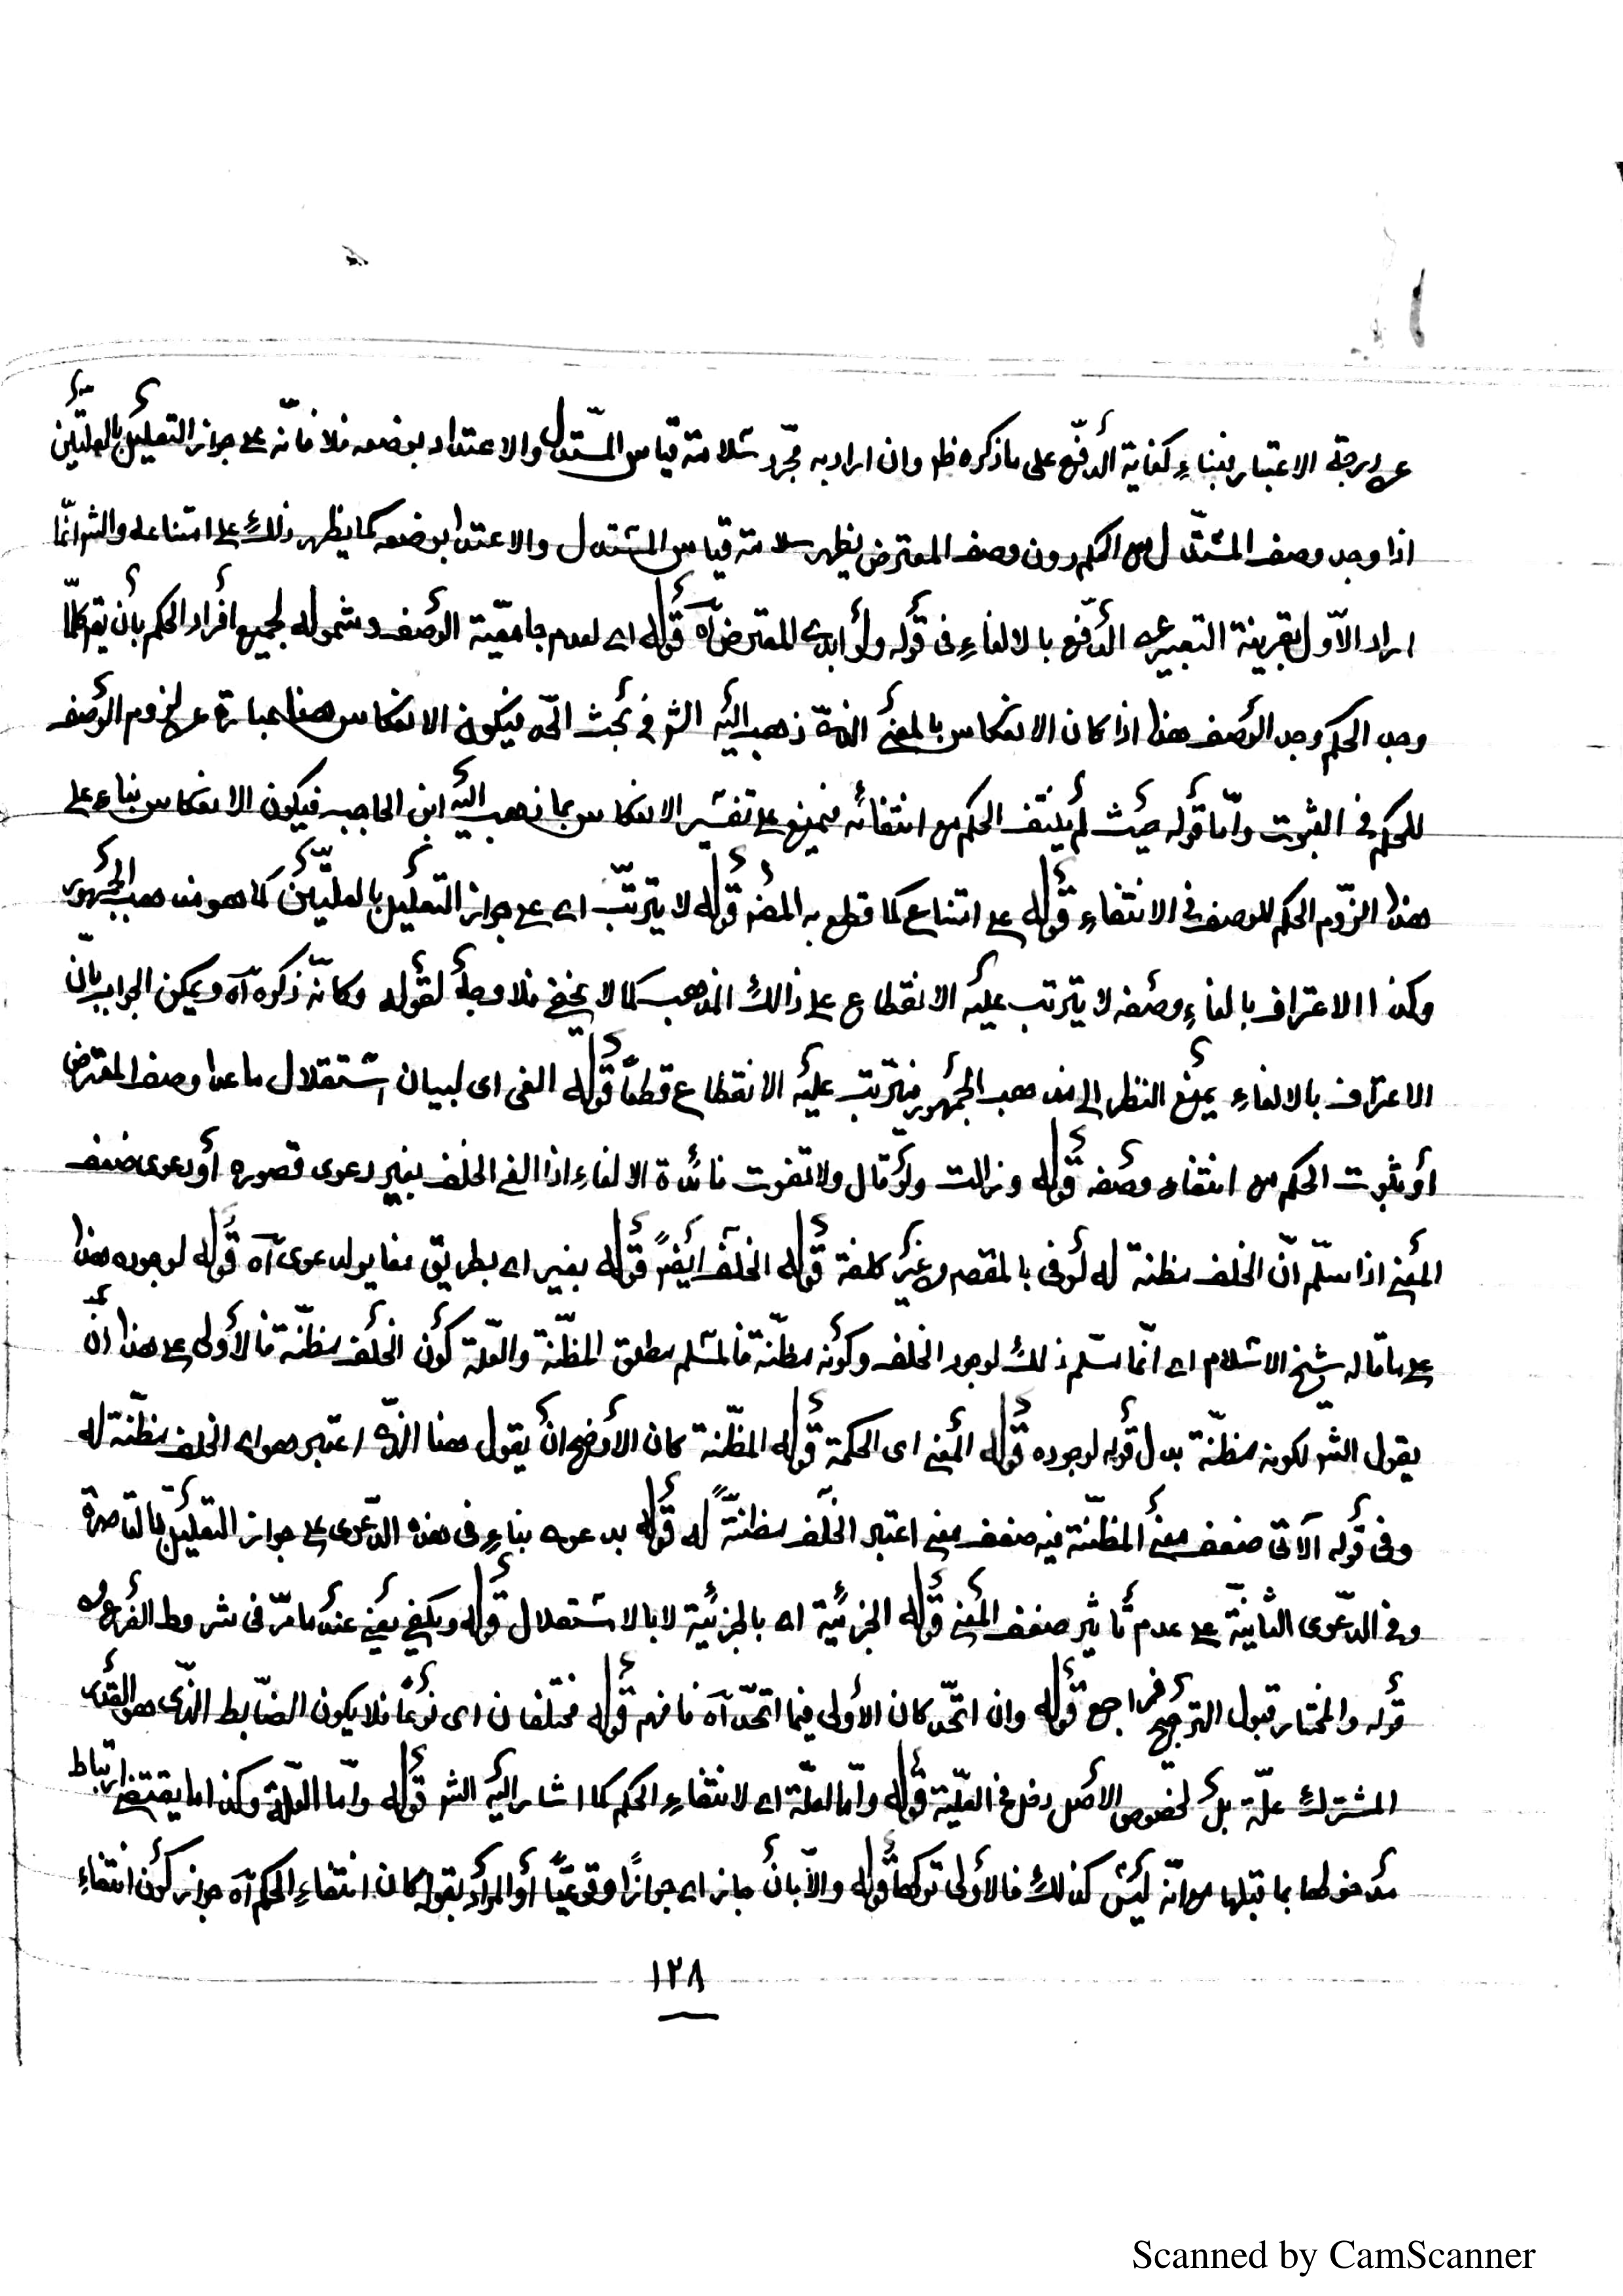 عن درجة الاعتبار فبناء كفاية الدفع على ماذكره ظ وان اراد به مجرد سلامة قياس المستدل والاعتداد بوصفه فلا فانه على جواز التعليل بالعلتين
اذا وجد وصف المستدل مع الحكم دون وصف المعترض يظهر سلامة قياس المستدل والاعتداد بوصفه كما يظهر ذلك على امتناعه والشر انما
اراد الاول بقرينة التعبير عن الدفع بالالغاء فى قوله ولو ابدى المعترض آه قوله اى لعدم جامعية الوصف وشموله لجميع أفراد الحكم بأن يقر كلما
وجد الحكم وجد الوصف هذا اذا كان الانعكاس بالمعنى الذى ذهب اليه الشر فى بحث الحد فيكون الانعكاس هنا عبارة عن لزوم الوصف
للحكم فى الثبوت واما قوله حيث لم ينتف الحكم مع انتفائه فمبنى على تفسير الانعكاس بما ذهب اليه ابن الحاجب فيكون الانعكاس بناء على
هذا لزوم الحكم للوصف فى الانتفاء قوله على امتناع كما قطع به المصنف قوله لا يترتب اى على جواز التعليل بالعلتين كما هو مذهب الجمهور
وكذا الاعتراف بالغاء وصفه لا يترتب عليه الانقطاع على ذالك المذهب كما لا يخفى فلا وجه لقوله وكانه ذكره آه ويمكن الجواب بان
الاعتراف بالالغاء يمنع النظر الى مذهب الجمهور فيترتب عليه الانقطاع قطعاً قوله الغى اى لبيان استقلال ماعدا وصف المعترض
أو ثبوت الحكم مع انتفاء وصفه قوله وزالت ولو قال ولا تفوت فائدة الالغاء اذا الغى الخلف بغير دعوى قصوره أو دعوى ضعف
المعنى اذا سلم ان الخلف مظنة له لوفى بالمقصود من غير كلفة قوله الخلف أيضاً قوله بغير اى بطريق مغاير لدعوى آه قوله لوجوده هذا
على ماقاله شيخ الاسلام اى انما سلم ذلك لوجود الخلف وكونه مظنة فالمسلم مطلق المظنة والعلة كون الخلف مظنة فالأولى على هذا أن
يقول الشر لكونه مظنة بدل قوله لوجوده قوله المعنى اى الحكمة قوله المظنة كان الأوضح أن يقول هنا الذى اعتبر هو اى الخلف مظنة له
وفى قوله الآتى ضعف معنى المظنة فيه ضعف معنى اعتبر الخلف مظنة له قوله بدعوى بناء فى هذه الدعوى على جواز التعليل بالقاصرة
وفى الدعوى الثانية على عدم تأثير ضعف المعنى قوله الجزئية اى بالجزئية لا بالاستقلال قوله ويكفى يغنى عنه مامر فى شروط الفرع من
قوله والمختار قبول الترجيح فراجع قوله وان اتحد كان الأولى فيما اتحد آه فافهم قوله مختلفان اى نوعاً فلا يكون الضابط الذى هو القدر
المشترك علة بل لخصوص الأصل دخل فى العلية قوله واما لعلة اى لانتفاء الحكم كما اشار اليه الشر قوله واما العلة وكذا اما يقتضى ارتباط
مدخولها بما قبلها مع انه ليس كذلك فالأولى تركها قوله والا بان جاز اى جوازاً وقوعيّا أو المراد بقوله كان انتفاء الحكم آه جواز كون انتفاء
١٢٨
Scanned by CamScanner